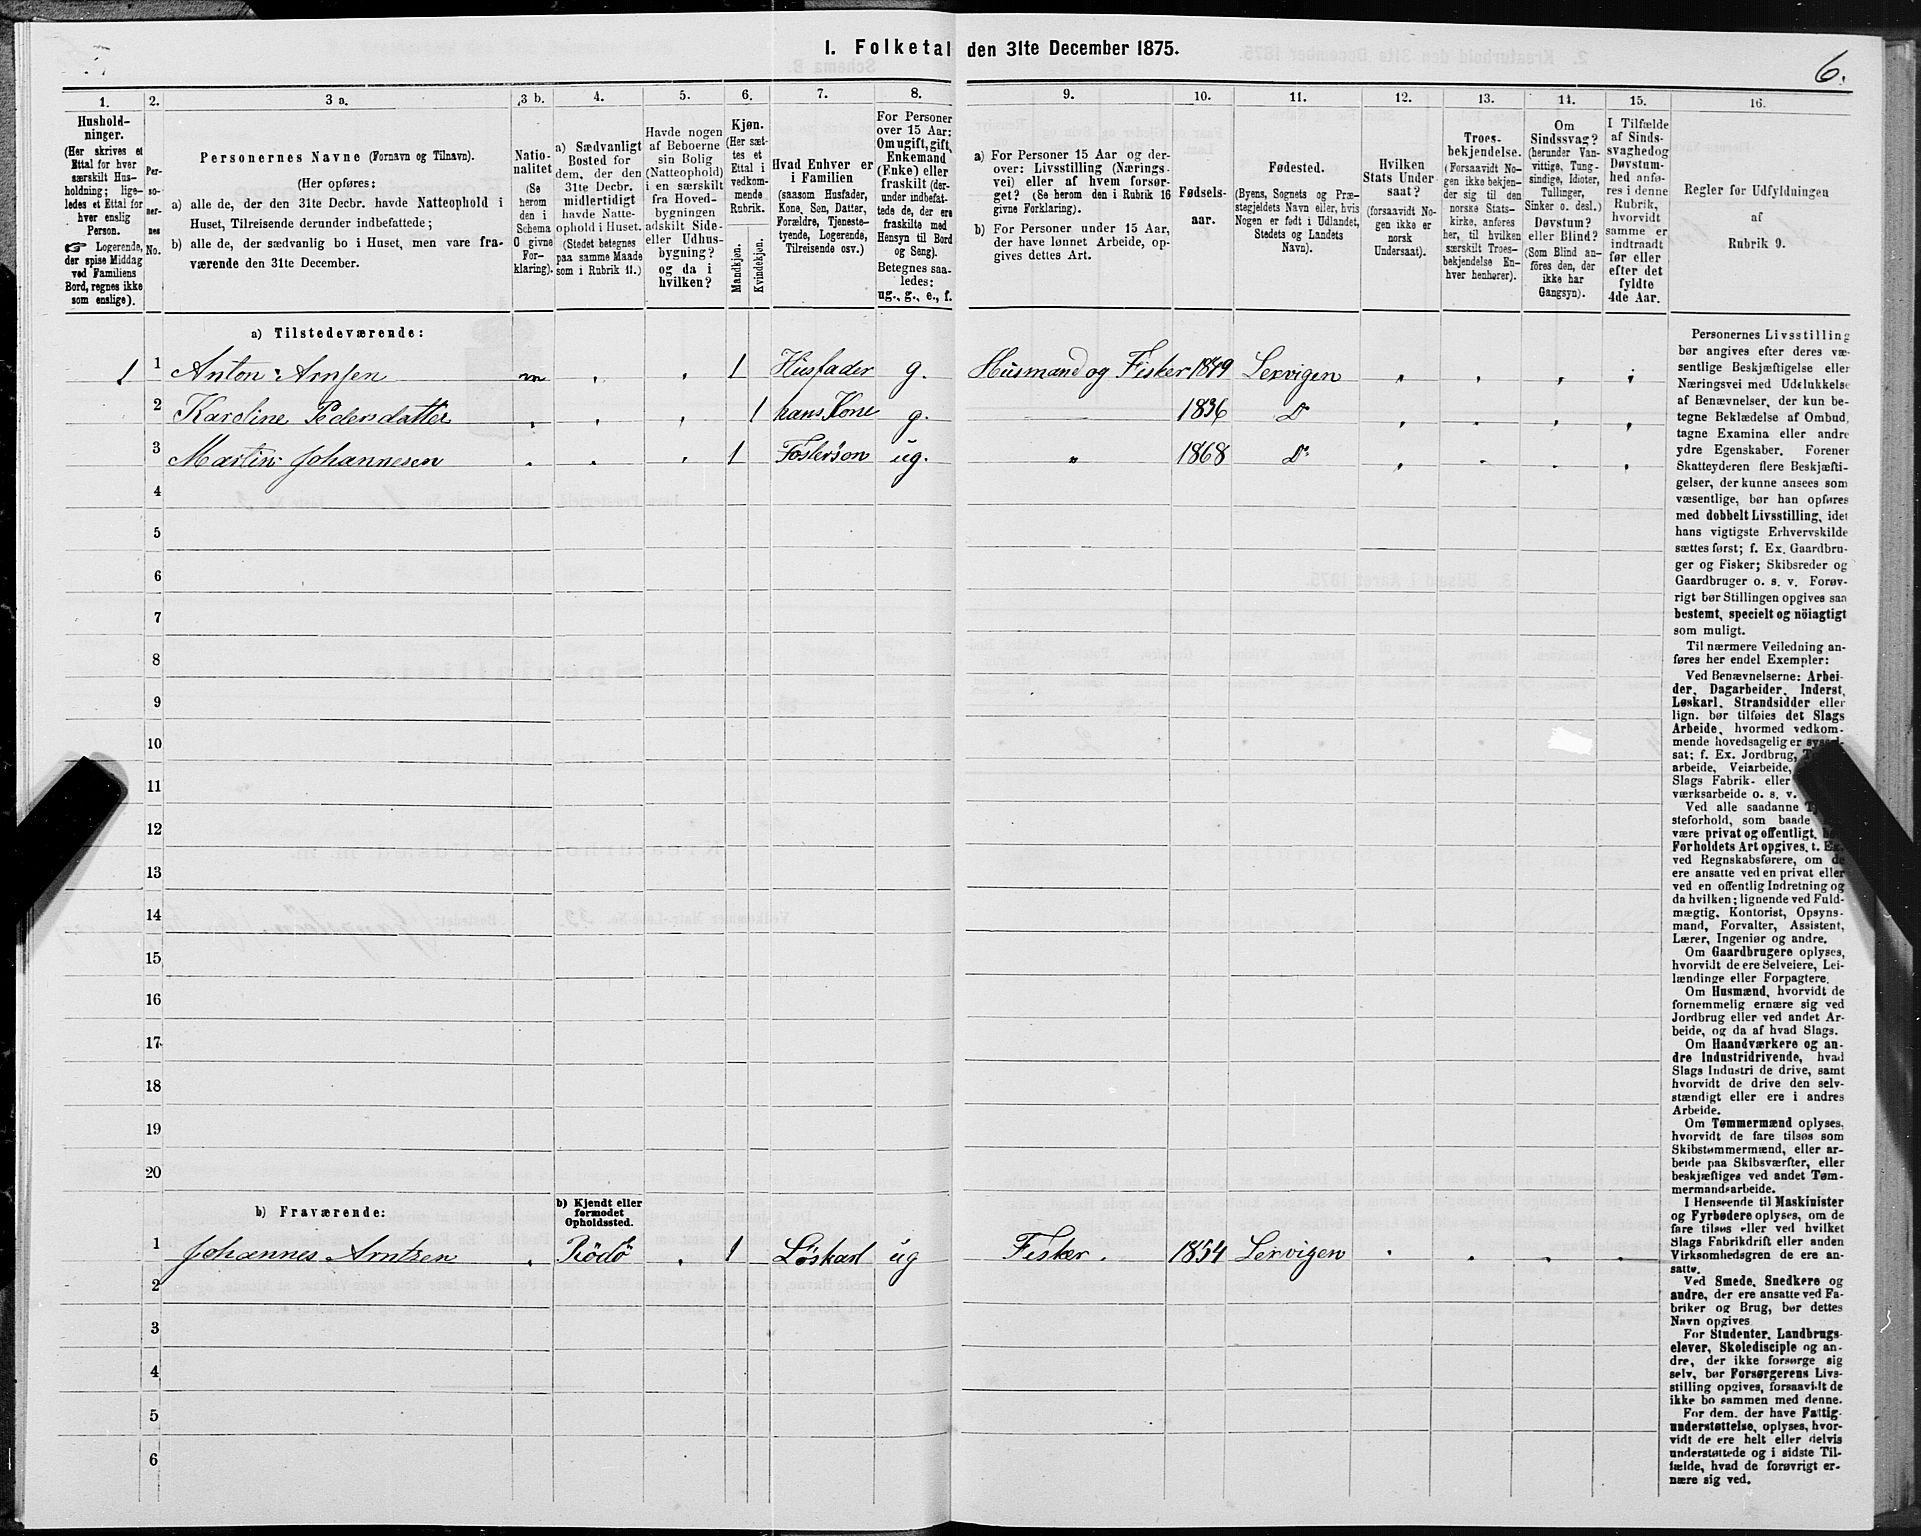 I. Folketal den 31te December 1875.
6.
1.
Hushold-
ninger.
(Her skrives et
Ettal for hver
særskilt Hus-
holdning; lige-
ledes et Ettal for
hver enslig
Person.
☞ Logerende,
der spise Middag
ved Familiens
Bord, regnes ikke
som enslige).
2.
Per-
so-
ner-
nes
No.
3 a.
Personernes Navne (Fornavn og Tilnavn).
(Her opføres:
a) alle de, der den 31te Decbr. havde Natteophold i
Huset, Tilreisende derunder indbefattede;
b) alle de, der sædvanlig bo i Huset, men vare fra-
værende den 31te December.
3 b.
Natio-
nalitet
(Se
herom
den i
Schema
O givne
For-
klaring).
4.
a) Sædvanligt
Bosted for
dem, der den
31te Decbr.
midlertidigt
havde Natte-
ophold i Huset.
(Stedet betegnes
paa samme Maade
som i Rubrik 11.)
5.
Havde nogen
af Beboerne
sin Bolig
(Natteophold)
i en særskilt
fra Hoved-
bygningen
adskilt Side-
eller Udhus-
bygning?
og da i
hvilken?
6.
Kjøn.
(Her sæt-
tes et
Ettal i
vedkom-
mende
Rubrik.
Mandkjøn.
Kvindekjøn.
7.
Hvad Enhver er
i Familien
(saasom Husfader,
Kone, Søn, Datter,
Forældre, Tjeneste-
tyende, Logerende,
Tilreisende osv.)
8.
For Personer
over 15 Aar:
Om ugift, gift,
Enkemand
(Enke) eller
fraskilt (der-
under indbefat-
tede de, der ere
fraskilte med
Hensyn til Bord
og Seng).
Betegnes saa-
ledes:
ug., g., e., f.
9.
a) For Personer 15 Aar og der-
over: Livsstilling (Nærings-
vei) eller af hvem forsør-
get? (Se herom den i Rubrik 16
givne Forklaring).
b) For Personer under 15 Aar,
der have lønnet Arbeide, op-
gives dettes Art.
10.
Fødsels-
aar.
11.
Fødested.
(Byens, Sognets og Præ-
stegjeldets Navn eller, hvis
Nogen er født i Udlandet,
Stedets og Landets
Navn).
12.
Hvilken
Stats Under-
saat?
(forsaavidt No-
gen ikke er
norsk
Undersaat).
13.
Troes-
bekjendelse.
(Forsaavidt No-
gen ikke bekjen-
der sig til den
norske Stats-
kirke, anføres
her, til hvilken
særskilt Troes-
bekjendelse En-
hver henhører).
14.
Om
Sindssvag?
(herunder Van-
vittige, Tung-
sindige, Idioter,
Tullinger,
Sinker o. desl.)
Døvstum?
eller Blind?
(Som Blind an-
føres den, der
ikke har
Gangsyn).
15.
I Tilfælde
af Sinds-
svaghed og
Døvstum-
hed anfø-
res i denne
Rubrik,
hvorvidt
samme er
indtraadt
før eller
efter det
fyldte
4de Aar.
16.
Regler for Udfyldningen
af
Rubrik 9.
a) Tilstedeværende:
1 1 Anton Arnsen n . . 1 Husfader g. Husmand og Fisker 1849 Lervigen
2 Karoline Pedersdatter . . . 1 hans Kone g. 1836 Do
3 Martin Johannesen . . . 1 Fostersøn ug. " 1868 Do
4
5
6
7
8
9
10
11
12
13
14
15
16
17
18
19
20
b) Fraværende:
b) Kjendt eller
formodet
Opholdssted.
1 Johannes Arntsen . Rödö . 1 Løskarl ug Fisker . 1854 Lervigen . . . .
2
3
4
5
6
Personernes Livsstilling
bør angives efter deres væ-
sentlige Beskjæftigelse eller
Næringsvei med Udelukkelse
af Benævnelser, der kun be-
tegne Beklædelse af Ombud,
tagne Examina eller andre
ydre Egenskaber. Forener
Skatteyderen flere Beskjæfti-
gelser, der kunne ansees som
væsentlige, bør han opføres
med dobbelt Livsstilling, idet
hans vigtigste Erhvervskilde
sættes først; f. Ex. Gaardbru-
ger og Fisker; Skibsreder og
Gaardbruger o. s. v. Forøv-
rigt bør Stillingen opgives saa
bestemt, specielt og nöiagtigt
som muligt.
Til nærmere Veiledning an-
føres her endel Exempler:
Ved Benævnelserne: Arbei-
der, Dagarbeider, Inderst,
Løskarl, Strandsidder eller
lign. bør tilføies det Slags
Arbeide, hvormed vedkom-
mende hovedsagelig er syssel-
sat; f. Ex. Jordbrug,
arbeide, Veiarbeide,
Slags Fabrik- eller
værksarbeide o. s. v.
Ved alle saadanne
steforhold, som baade
være privat og offentligt,
Forholdets Art opgives, t. Ex.
ved Regnskabsførere, om de
ere ansatte ved en privat eller
ved en offentlig Indretning og
da hvilken; lignende ved Fuld-
mægtig, Kontorist, Opsyns-
mand, Forvalter, Assistent,
Lærer, Ingeniør og andre.
Om Gaardbrugere oplyses,
hvorvidt de ere Selveiere, Lei-
lændinge eller Forpagtere.
Om Husmænd, hvorvidt de
fornemmelig ernære sig ved
Jordbrug eller ved andet Ar-
beide, og da af hvad Slags.
Om Haandværkere og an-
dre Industridrivende, hvad
Slags Industri de drive, samt
hvorvidt de drive den selv-
stændigt eller ere i andres
Arbeide.
Om Tømmermænd oplyses,
hvorvidt de fare tilsøs som
Skibstømmermænd, eller ar-
beide paa Skibsværfter, eller
beskjæftiges ved andet Tøm-
mermandsarbeide.
I Henseende til Maskinister
og Fyrbødere oplyses, om de
fare tilsøs eller ved hvilket
Slags Fabrikdrift eller anden
Virksomhedsgren de ere an-
satte.
Ved Smede, Snedkere og
andre, der ere ansatte ved Fa-
briker og Brug, bør dettes
Navn opgives
For Studenter, Landbrugs-
elever, Skoledisciple og an-
dre, der ikke forsørge sig
selv, bør Forsørgerens Livs-
stilling opgives, forsaavidt de
ikke bo sammen med denne.
For dem, der have Fattig-
understøttelse, oplyses, hvor-
vidt de ere helt eller delvis
understøttede og i sidste Til-
fælde, hvad de forøvrigt er-
nære sig ved.